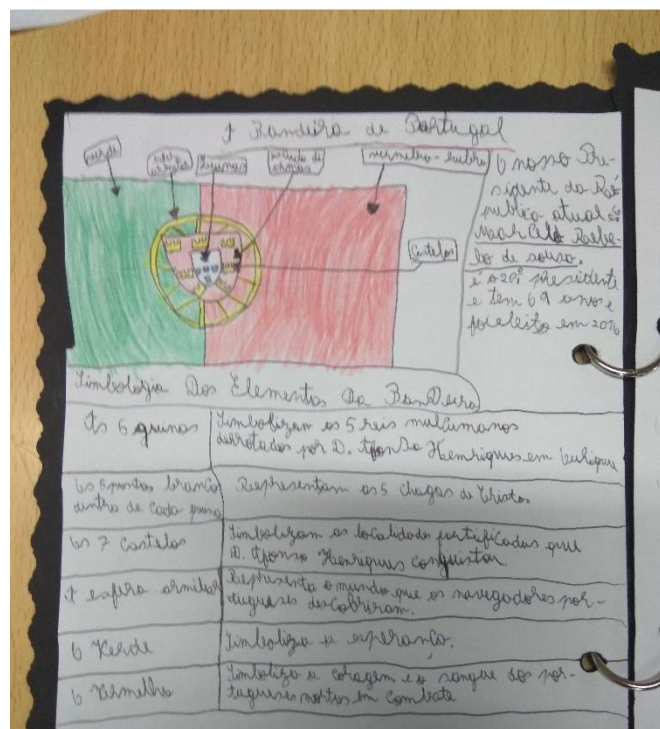 A Bandeira de Portugal
verde
esfera armilar
5 quinas
escudo de armas
vermelho-rubro
Castelos
O nosso Pre-
sidente da Re-
publica atual é
Maarcelo Rebe-
lo de sousa.
é o 20º presidente
e tem 69 anos e
foi eleito em 2016
Simbologia Dos Elementos Da Bandeira
As 5 quinas
Simbolizam os 5 reis mulçumanos
derrotados por D. Afonso Henriques em
Os 5 pontos branco
dentro de cada quina
Representam as 5 chagas de Cristo.
Os 7 Castelos
Simbolizam as localidades fortificadas que
D. Afonso Henriques conquistou.
A esfera armilar
Representa o mundo que os navegadores por-
tugueses descobriram.
O Verde
Simboliza a esperança.
O Vermelho
Simboliza a coragem e o sangue dos por-
tugueses mortos em combate